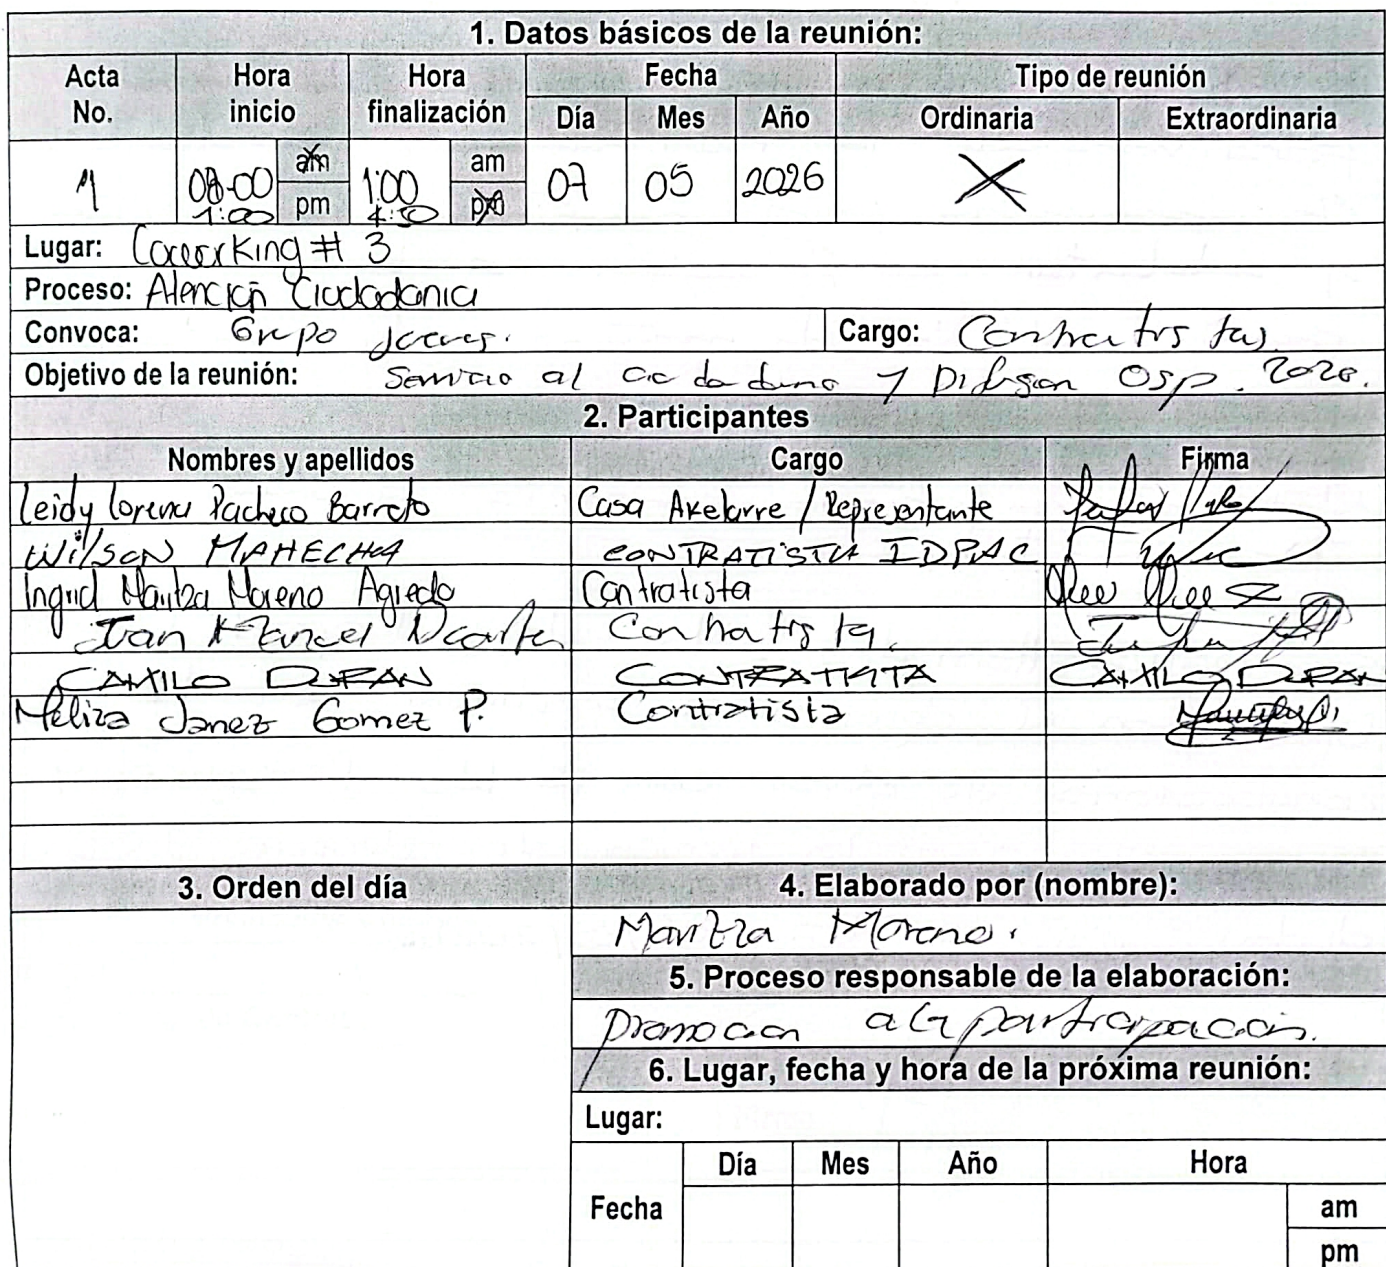 1. Datos básicos de la reunión:
Acta No. Hora inicio Hora finalización Fecha Tipo de reunión
Día Mes Año Ordinaria Extraordinaria
1 08:00 am 1:00 am 07 05 2026 X
1:00 pm 4:30 pm
Lugar: Coworking # 3
Proceso: Atención Ciudadania
Convoca: Grupo Cargo: Contratistas
Objetivo de la reunión: Servicio al ciudadano y Difusion Osp. 2026.
2. Participantes
Nombres y apellidos Cargo Firma
Leidy Lorena Pacheco Barreto Casa Axelarre / Representante
Wilson MAHECHA CONTRATISTA IDPAC
Ingrid Maritza Moreno Agredo Contratista
Manuel Contratista
CAMILO DURAN CONTRATISTA CAMILO DURAN
Meliza Janez Gomez P. Contratista
3. Orden del día 4. Elaborado por (nombre):
Maritza Moreno.
5. Proceso responsable de la elaboración:
Promocion a la participación.
6. Lugar, fecha y hora de la próxima reunión:
Lugar:
Día Mes Año Hora
Fecha am
pm